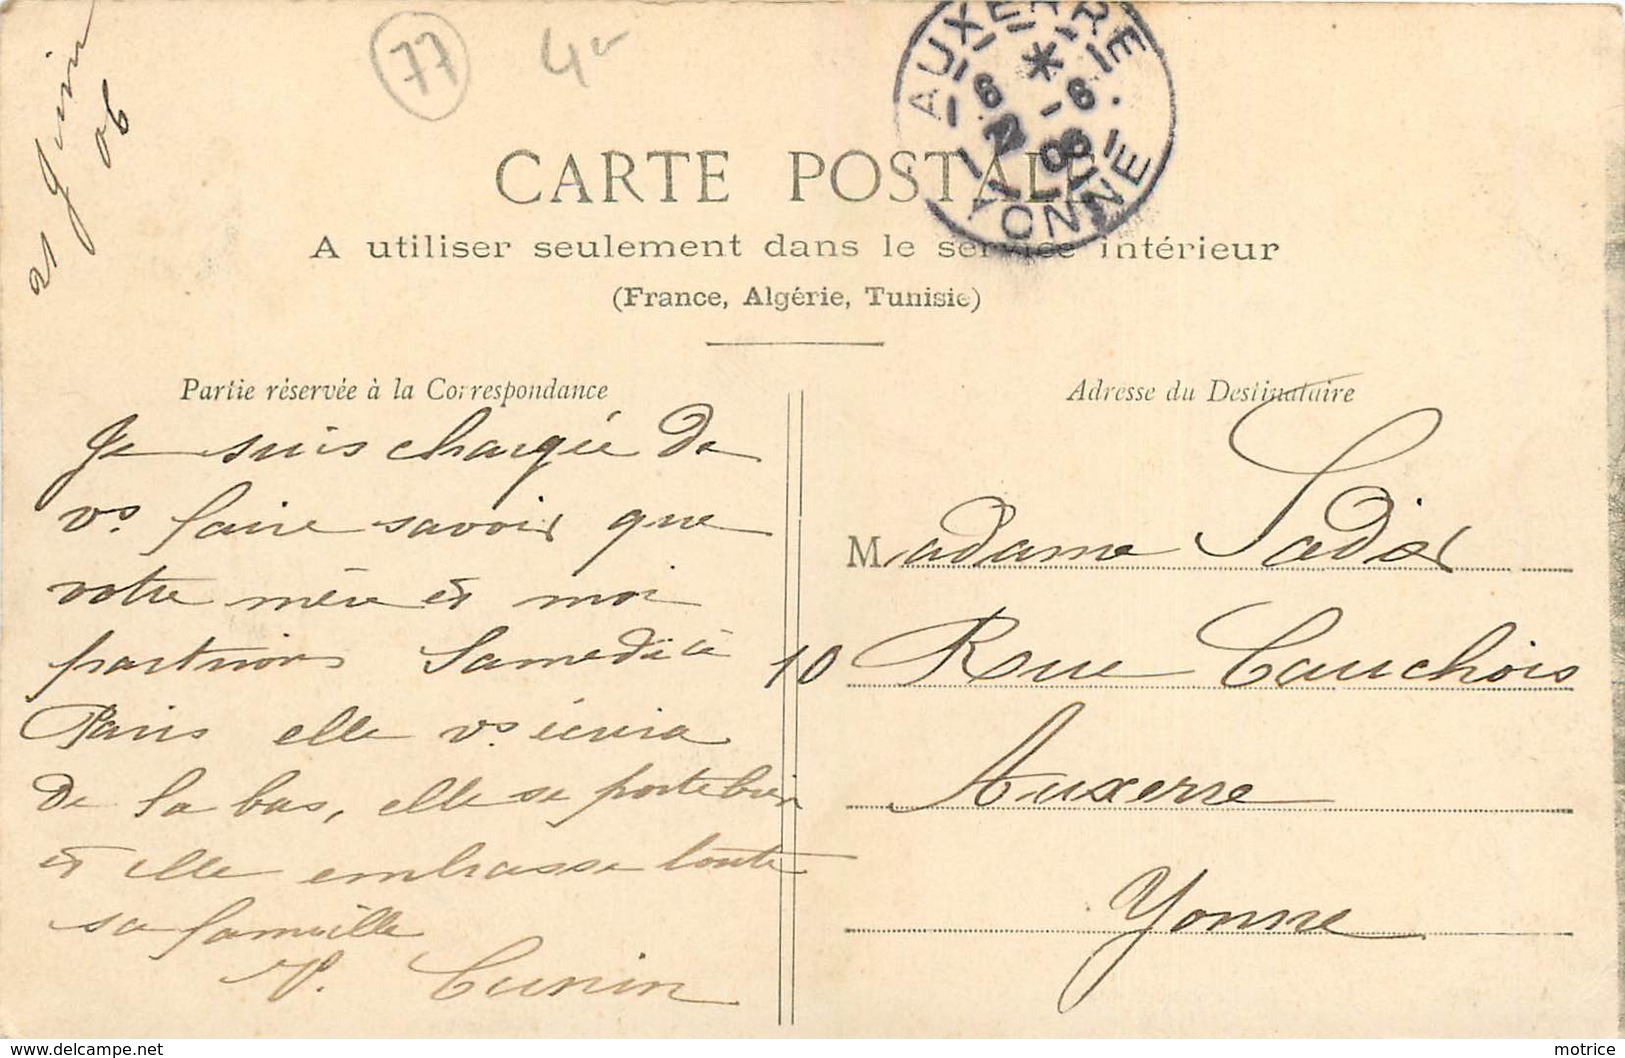 21 Juin
06
77
4
AUXERRE
YONNE
CARTE POSTALE
A utiliser seulement dans le service intérieur
(France, Algérie, Tunisie)
Partie réservée à la Correspondance
Je suis chargée de
vs faire savoir que
votre mère et moi
partirions Samedi à
Paris elle vs écrira
de la bas, elle se porte bien
et elle embrasse toute
sa famille
Cunin
Adresse du Destinataire
Madame Sadier
10 Rue Cauchois
Auxerre
Yonne
motrice
delcampe.net